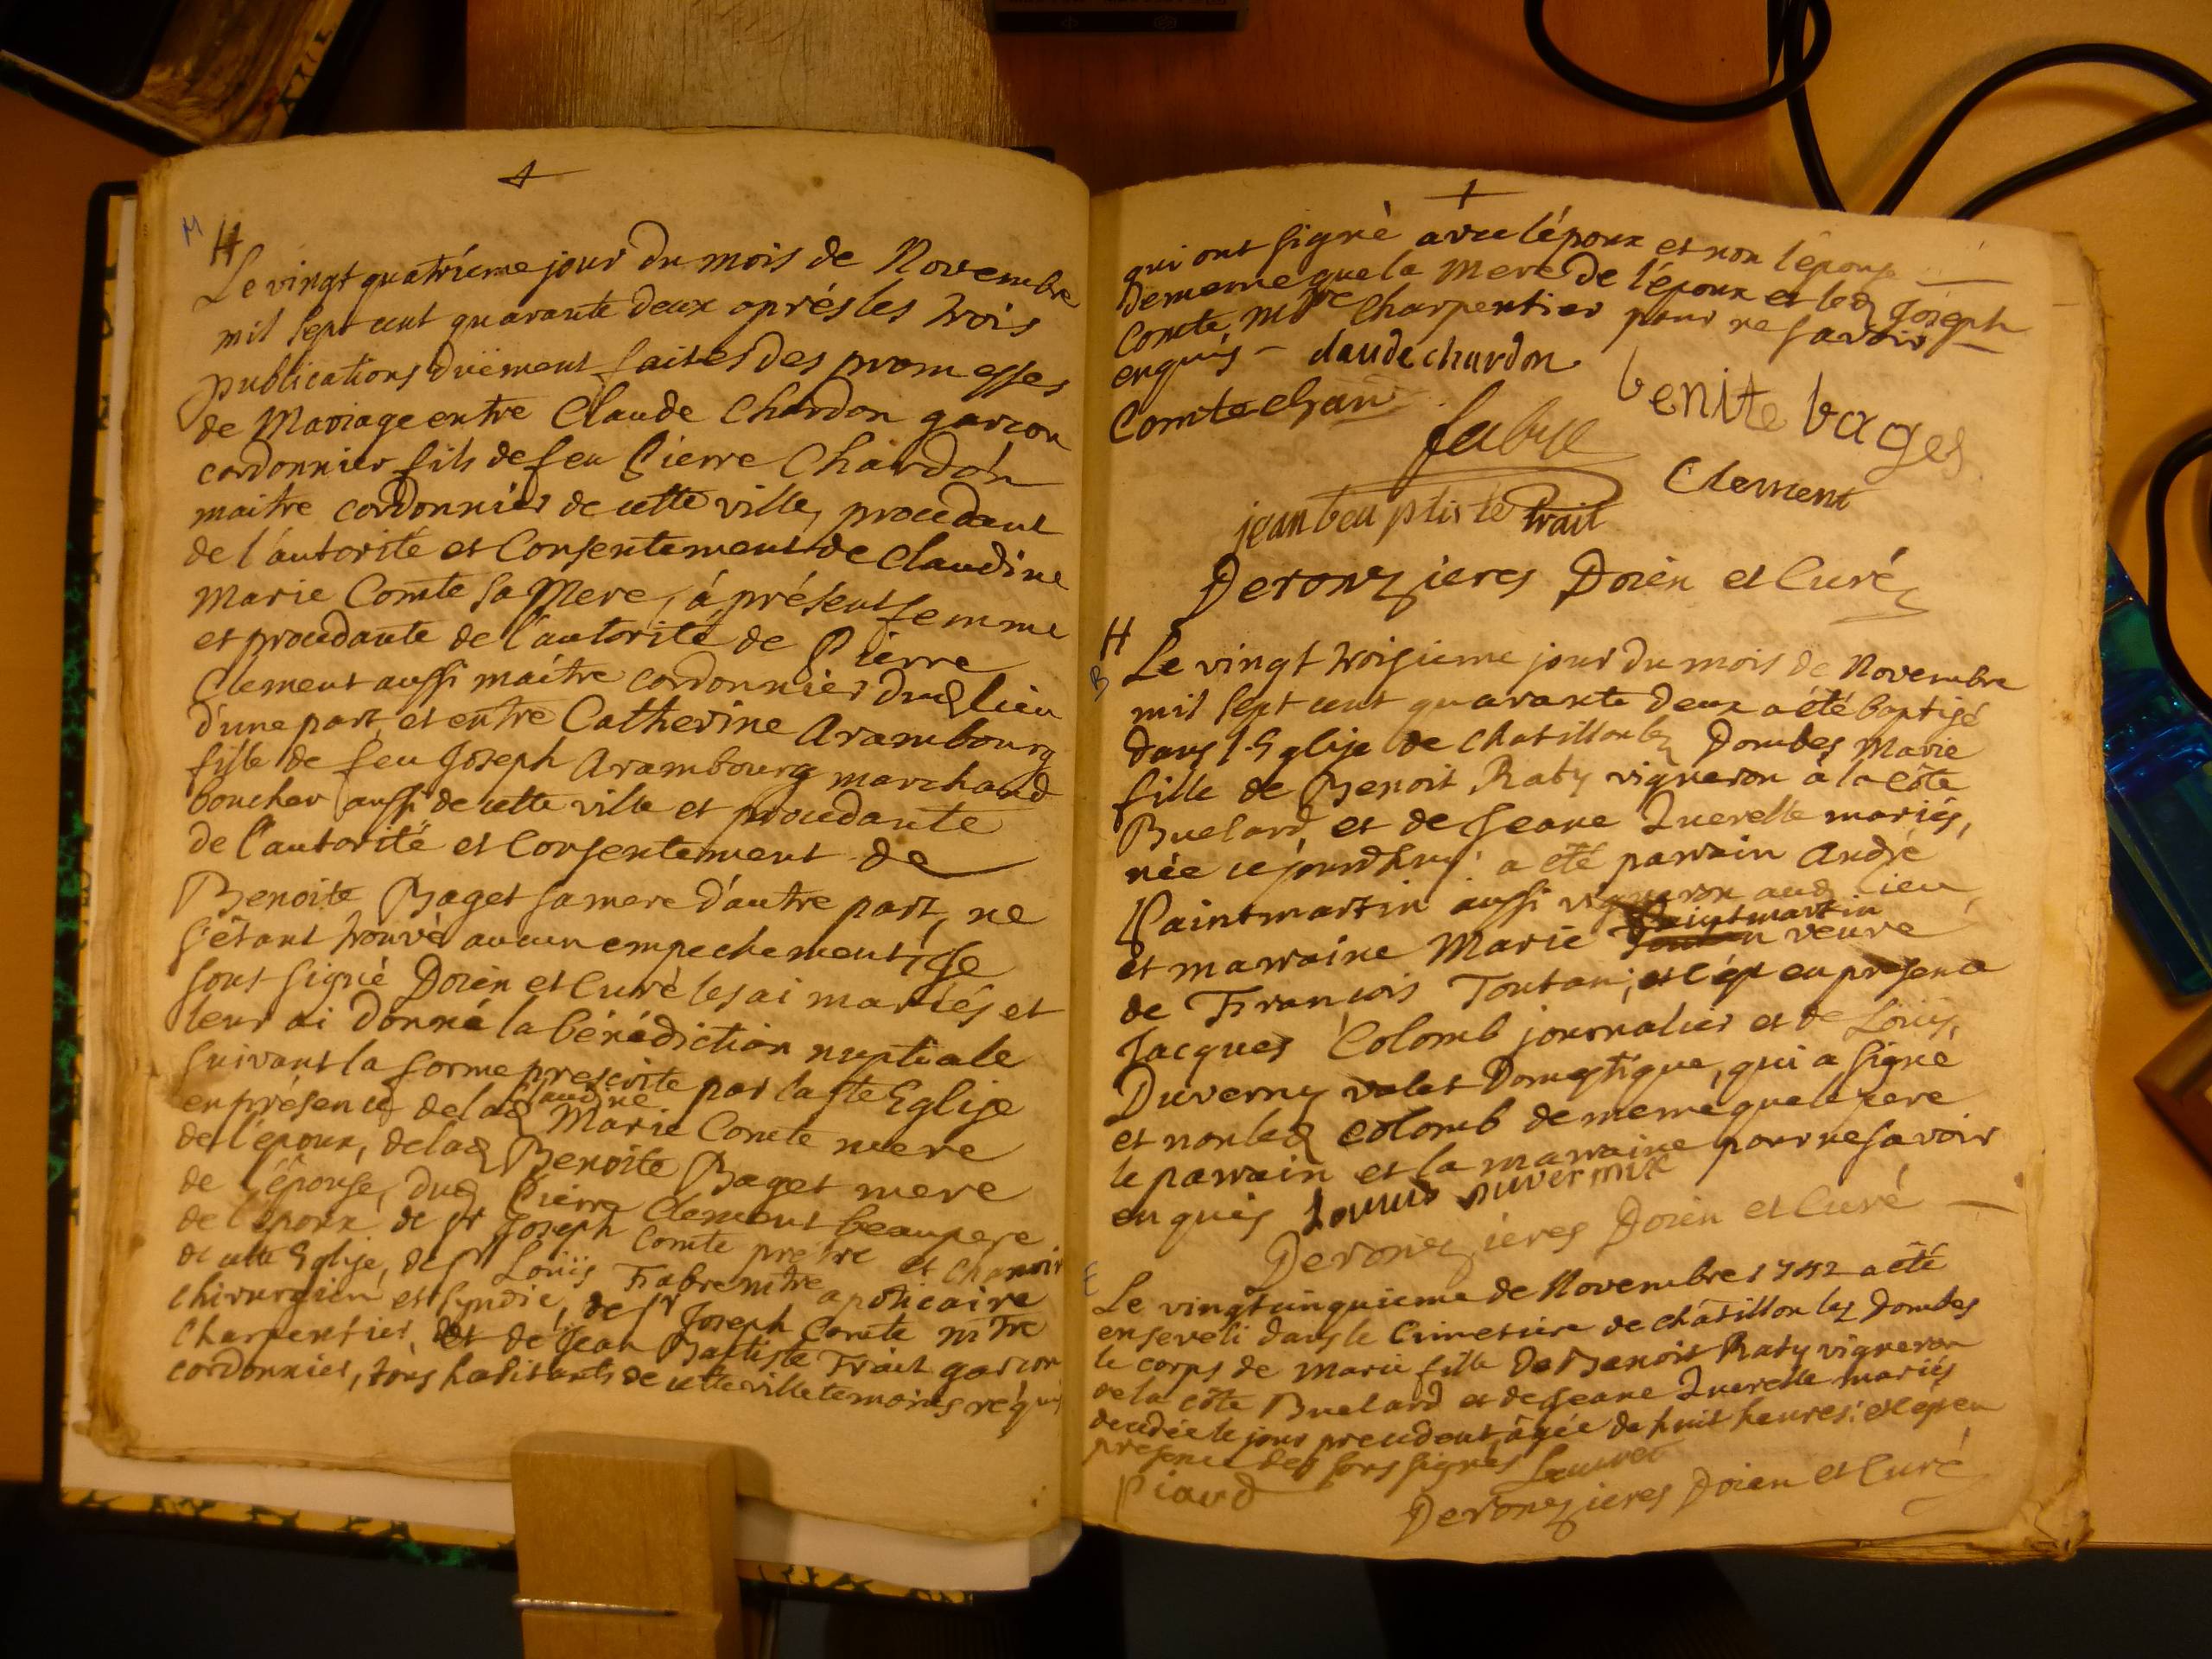 M
H
Le vingt quatrieme jour du mois de Novembre
mil sept cent quarante deux après les trois
publications düement faites des promesses
de Mariage entre Claude Chardon garcon
cordonnier fils de feu Pierre Chardon
maitre cordonnier de cette ville, procedant
de l'autorité et Consentement de Claudine
Marie Comte sa Mere, à présent femme
et procedante de l'autorité de Pierre
Clement aussi maitre cordonnier dud lieu
d'une part, et entre Catherine Arambourg
fille de feu Joseph Arambourg marchand
boucher aussi de cette ville et procedante
de l'autorité et Consentement de
Benoite Baget sa mere d'autre part, ne
s'étant trouvé aucun empechement, Je
sous signé Doien et Curé les ai mariés et
leur ai donné la bénédiction nuptiale
suivant la forme prescrite par la ste Eglise
en présence de lad Claudine Marie Comte mere
de l'époux, de lad Benoite Baget mere
de l'épouse, dud Pierre Clement beaupere
de l'époux de sr Joseph Comte prêtre et chanoin
de cette Eglise, de sr Loüis Fabre mtre apoticaire
chirurgien et syndic, de sr Joseph Comte mtre
charpentier et de Jean Baptiste Trait garcon
cordonnier, tous habitants de cette ville temoins réquis
qui ont signé avec l'époux et non l'épouse
de meme que la Mere de l'époux et led Joseph
Comte, mtre Charpentier pour ne savoir
enquis - claude chardon
benite bages
Comte chan
fabre
Clement
jean baptiste trait
Deronzieres Doien et Curé
H
B
Le vingt troisieme jour du mois de Novembre
mil sept cent quarante deux a été baptisé
dans l'Eglise de chatillon lez Dombes Marie
fille de Benoit Raty vigneron à la côte
Buelard, et de Jeane Querelle mariés,
née ce jourdhuy: a été parrain André
Saintmartin aussi vigneron aud lieu,
et marraine Marie Saintmartin veuve
de François Toutan; et c'est en presence
Jacques Colomb journalier et de Loüis
Duverny valet Domestique, qui a signé
et non led Colomb de meme que le pere
le parrain et la marraine pour ne savoir
enquis
Deronzieres Doien et Curé
E
Le vingt cinquieme de Novembre 1742 a été
enseveli dans le Cimetiere de châtillon lez Dombes
le corps de Marie fille de Benoit Raty vigneron
de la côte Buelard et de Jeane Querelle mariés
decedée le jour precedent âgée de huit heures: et c'est en
presence des sous signés
Piaud
Deronzieres Doien et Curé